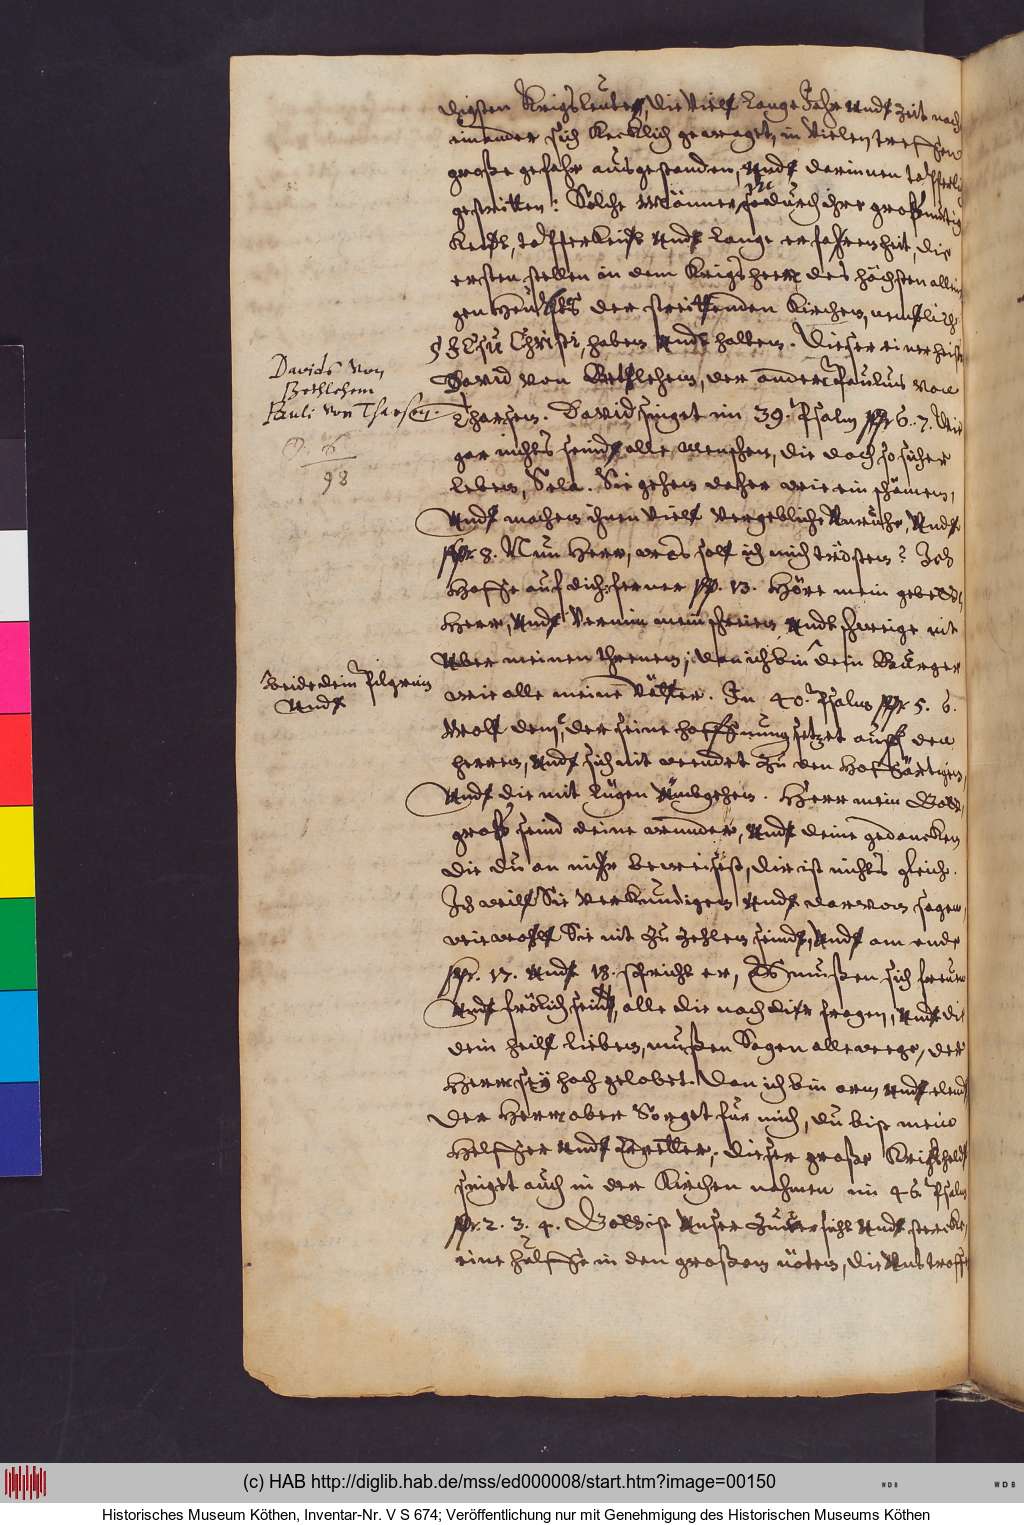 digsten Krigsleüten, die Vielf Lange Jahr Undt Zeit nach
einander sich Kecklich gewaget, in Vielen treffen
große gefahr ausgestanden, Undt darinnen tapfferlich
gestritten: Solche Männer, so durch ihre großmütig
Keitt, tapfferkeidt Undt Lange erfahrenheit, die
ersten stellen in dem Krigsheer des höchsten allein
gen Heubts der streittenden Kirchen, nemblich
JESU Christi, haben Undt halten. Dieser einer heist
Davids von
Bethlehem
Pauli von Tharsen.
David von Bethlehem, der ander Paulus von
Tharsen. David singet im 39. Psalm 6. 7. Wie
gar nichts seindt alle Menschen, die doch so sicher
98
leben, Sela. Sie gehen daher wie ein schämen,
Undt machen ihnen Vielf Vergebliche Unruhe, Undt
8. Nun Herr, was solf ich mich trösten? Ich
Hoffe auf dich: ferner 13. Höre mein gebett,
Herr, Undt Vernim mein schreien Undt schweige nit
Uber meinen threnen, dan ich bin dein Bürger
Beide dein Pilgrim
Undt
wie alle meine Vätter. In 40. Psalm 5. 6.
Wolf dem, der seine hoffnung setzet auff den
herren, Undt sich nit wendet Zu den Hoffärtigen,
Undt die mit Lügen Umbgehen. Herr mein Gott,
groß seind deine wunder, Undt deine gedancken
die du an unß beweisest, dir ist nichts gleich.
Ich wilf Sie Verkundigen Undt darvon sagen,
wie wolf Sie nit Zu Zehlen seindt, Undt am ende
17. Undt 18. spricht er, Es mußen sich freuen
Undt frölich sein, alle die nach dir fragen, Undt die
dein heilf lieben, mußen Sagen allewege, der
Herr seÿ hoch gelobet. Dan ich bin arm Undt elendt,
Der Herr aber Sorget für mich, du bist mein
Helffer Undt Erretter, dieser große Krigsheldt
singet auch in der Kirchen nahmen im 46. Psalm
2. 3. 4. Gott ist Unser Zuversicht Undt stercke,
eine hülffe in den großen nöten, die Uns troffen
(c) HAB http://diglib.hab.de/mss/ed000008/start.htm?image=00150
Historisches Museum Köthen, Inventar-Nr. V S 674; Veröffentlichung nur mit Genehmigung des Historischen Museums Köthen